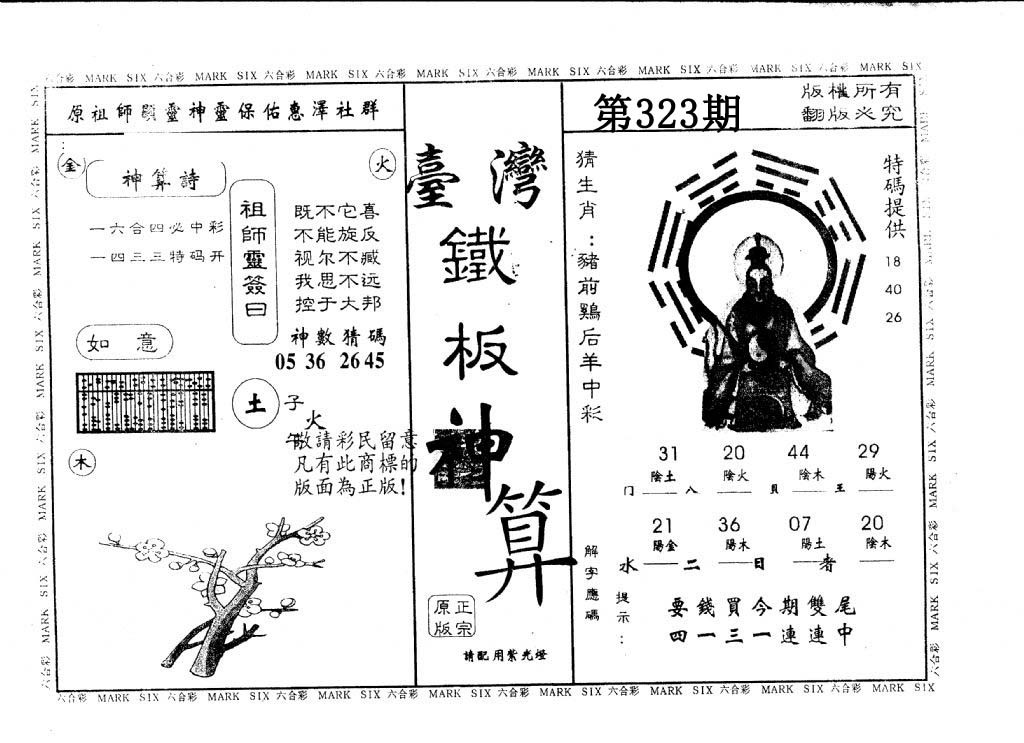 MARK SIX 六合彩 MARK SIX 六合彩 MARK SIX 六合彩 MARK SIX 六合彩 MARK SIX 六合彩 MARK SIX 六合彩 MARK SIX 六合彩 MARK SIX
原祖師顯靈神靈保佑惠澤社群
金
火
神算詩
一六合四必中彩
一四三三特码开
祖師靈簽曰
既不它喜
不能旋反
视尔不臧
我思不远
控于大邦
神數猜碼
05 36 26 45
如意
土
子
火
午
木
敬請彩民留意
凡有此商標的
版面為正版!
臺灣
鐵
板
神
算
正宗
原版
請配用紫光燈
第323期
版權所有
翻版必究
猜生肖:豬前鷄后羊中彩
特碼提供
18
40
26
31 20 44 29
陰土 陰火 陰木 陽火
门 八 貝 王
21 36 07 20
陽金 陽木 陽土 陰木
水 二 日 者
解字應碼
提示:
要錢買今期雙尾
四一三一連連中
六合彩 MARK SIX 六合彩 MARK SIX 六合彩 MARK SIX 六合彩 MARK SIX 六合彩 MARK SIX 六合彩 MARK SIX 六合彩 MARK SIX 六合彩 MARK SIX